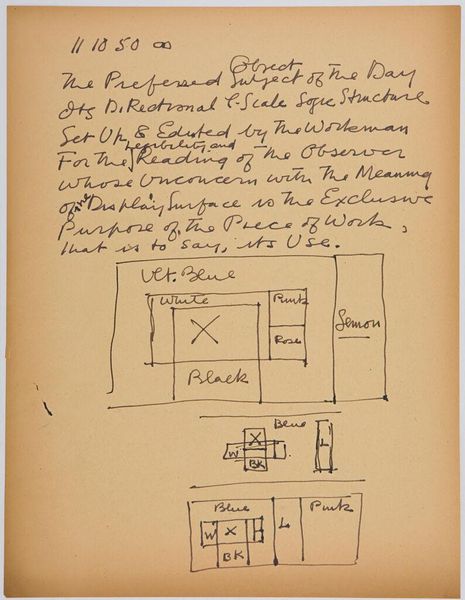 11 10 50 ∞
Object
The Preferred Subject of The Day
Its D.Rectional C-Scale Logic Structure
Set Up, & Edited by The Workman
Legibility and
For The Reading of The Observer
whose Unconcern with The Meaning
of The Display Surface is The Exclusive
Purpose of The Piece of Work,
that is to say, its Use.
Ult. Blue
White
Pink
X
Rose
Lemon
Black
Blue
X
W
L
BK
Blue
Pink
L
W X
BK